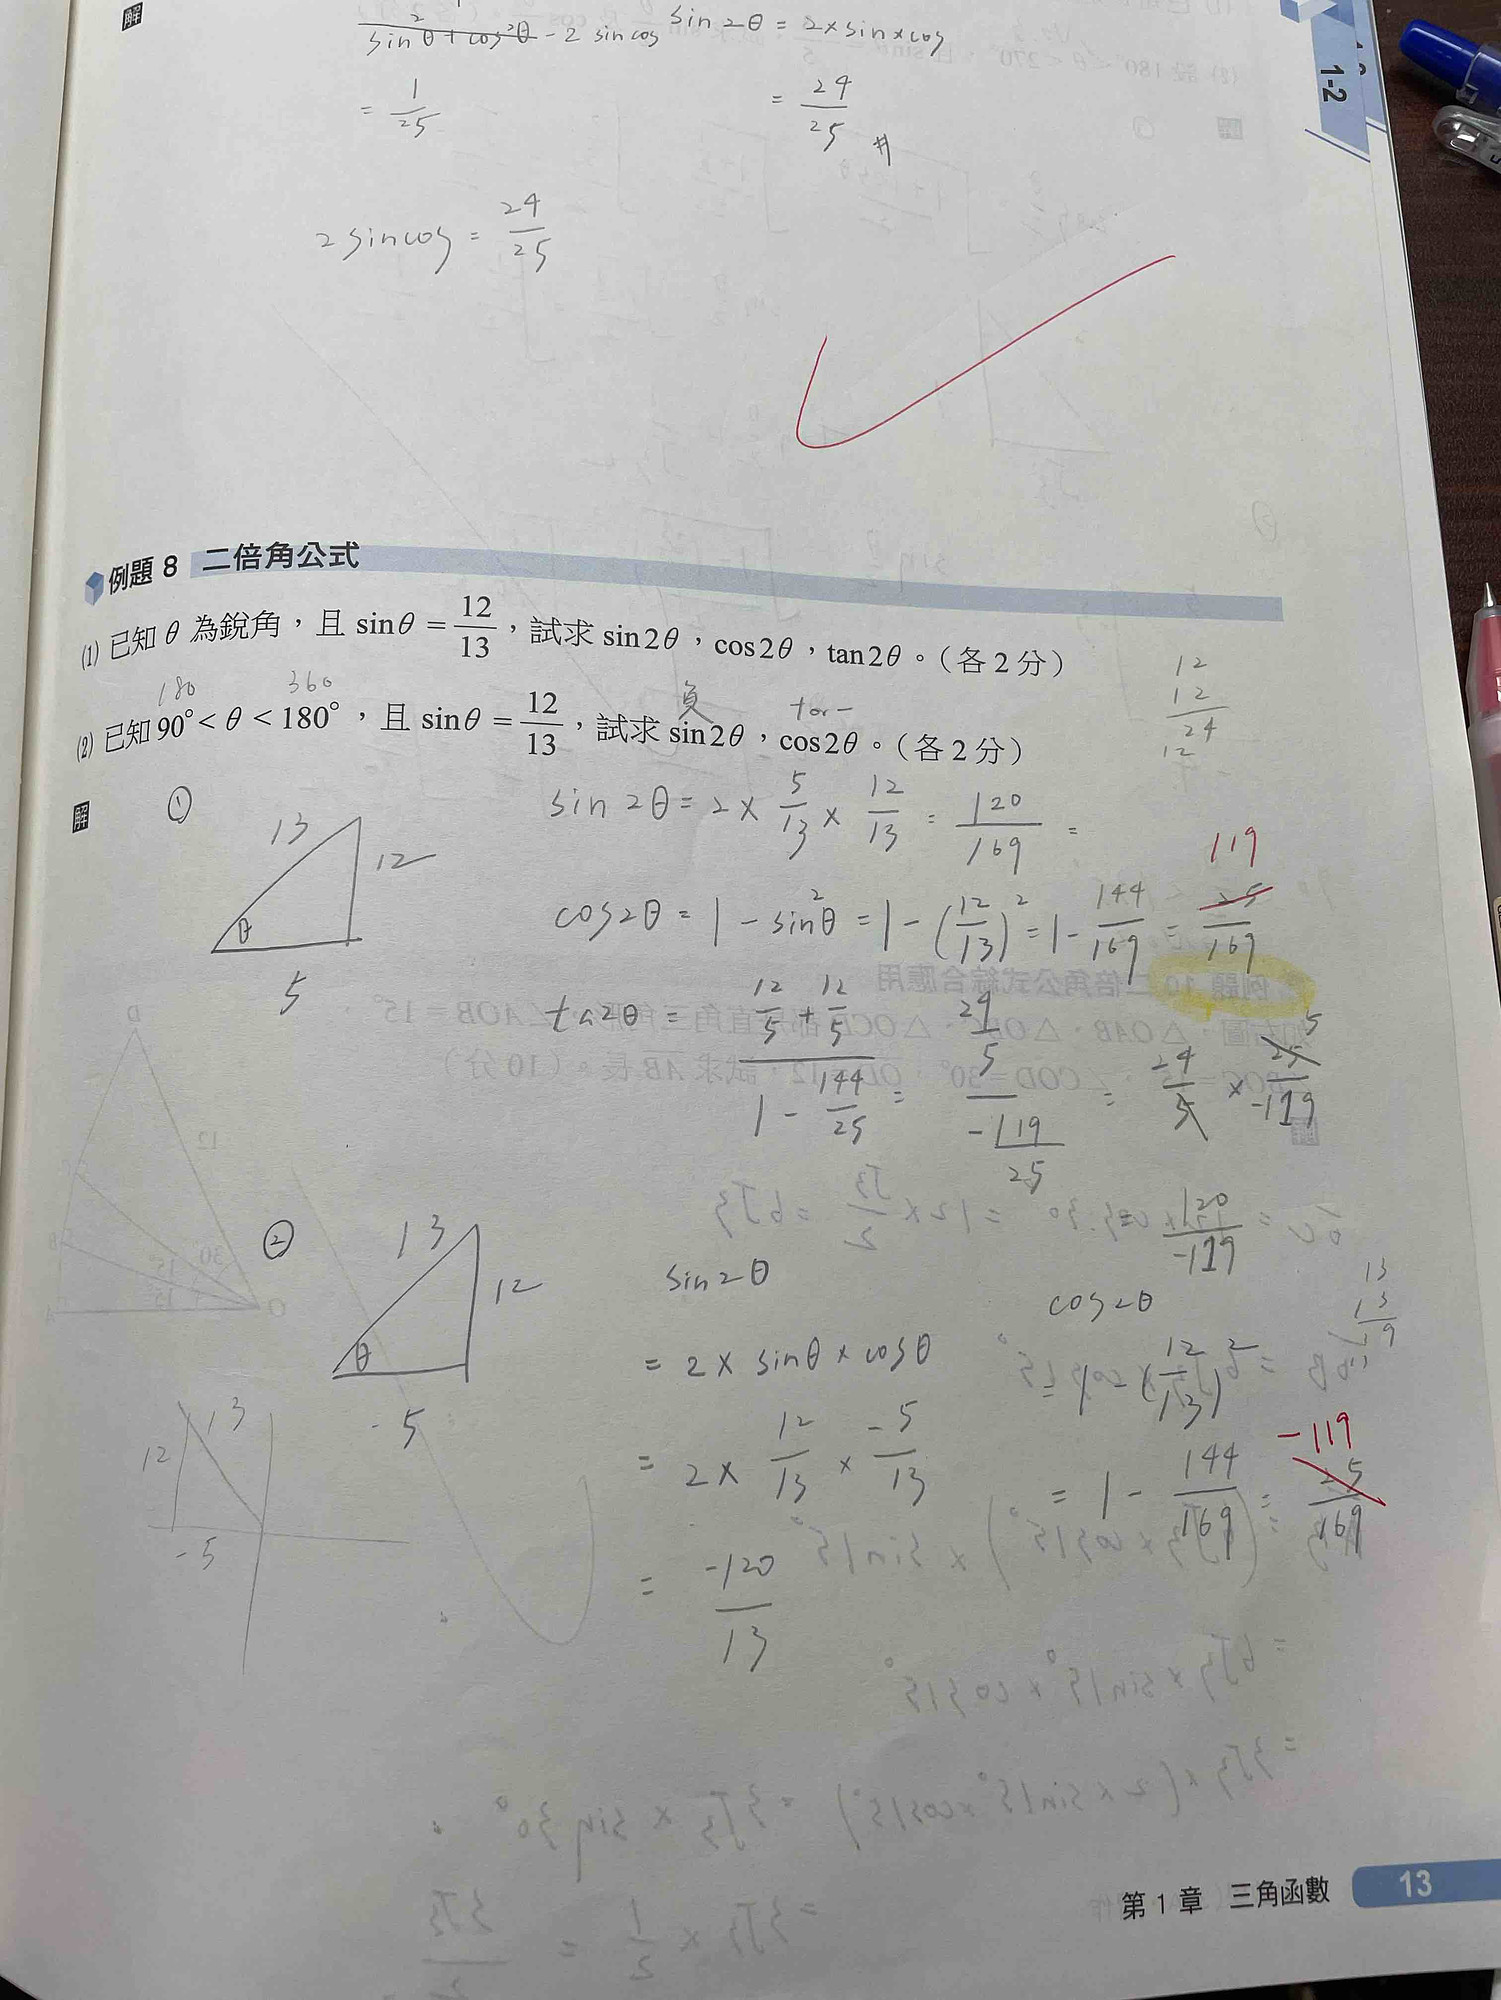 解
2
sinθ + cos²θ - 2 sincos
sin2θ = 2×sin×cos
= 1/25
= 24/25 #
1-2
2sincos = 24/25
例題 8 二倍角公式
(1) 已知 θ 為銳角，且 sinθ = 12/13，試求 sin2θ，cos2θ，tan2θ。（各 2 分）
180 360 負 + or -
(2) 已知 90° < θ < 180°，且 sinθ = 12/13，試求 sin2θ，cos2θ。（各 2 分）
12
12
24
12
解
①
13
12
θ
5
sin2θ = 2 × 5/13 × 12/13 = 120/169 =
119
cos2θ = 1 - sin²θ = 1 - (12/13)² = 1 - 144/169 = 25/169
ta2θ = (12/5 + 12/5)/(1 - 144/25) = (24/5)/(-119/25) = 24/5 × 25/-119
5
= 120/-119
②
13
12
θ
-5
13
12
-5
sin2θ
= 2 × sinθ × cosθ
= 2 × 12/13 × -5/13
= -120/13
cos2θ
= 1 - (12/13)²
-119
= 1 - 144/169 = 25/169
13
13
第 1 章 三角函數 13